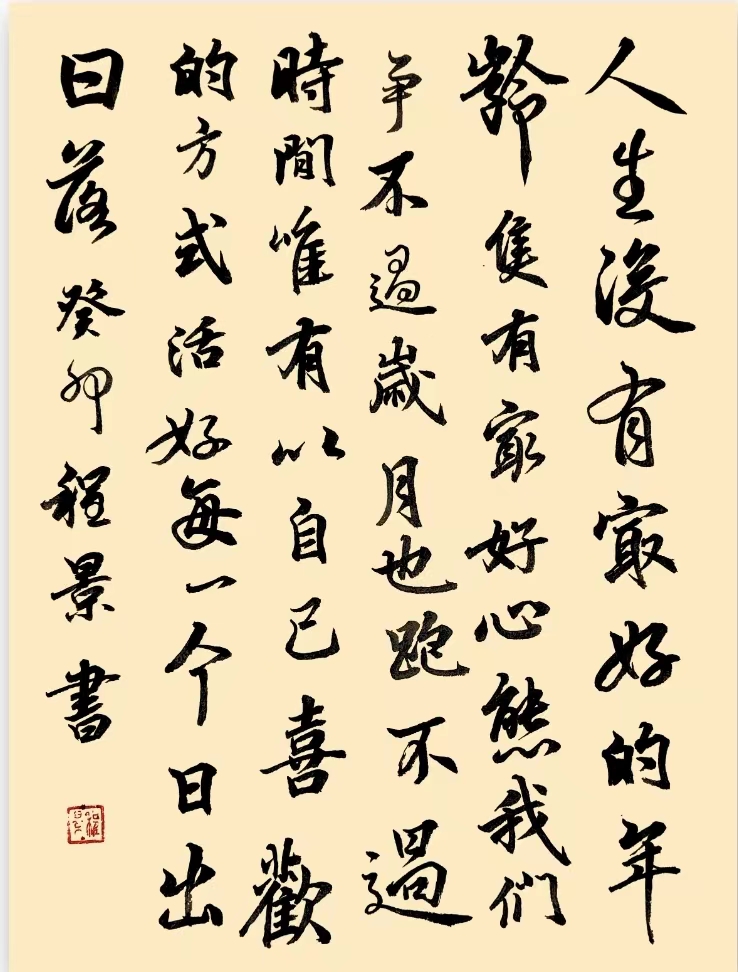 人生没有最好的年
龄隻有最好心態我们
争不過歲月也跑不過
時間唯有以自己喜歡
的方式活好每一个日出
日落癸卯程景書